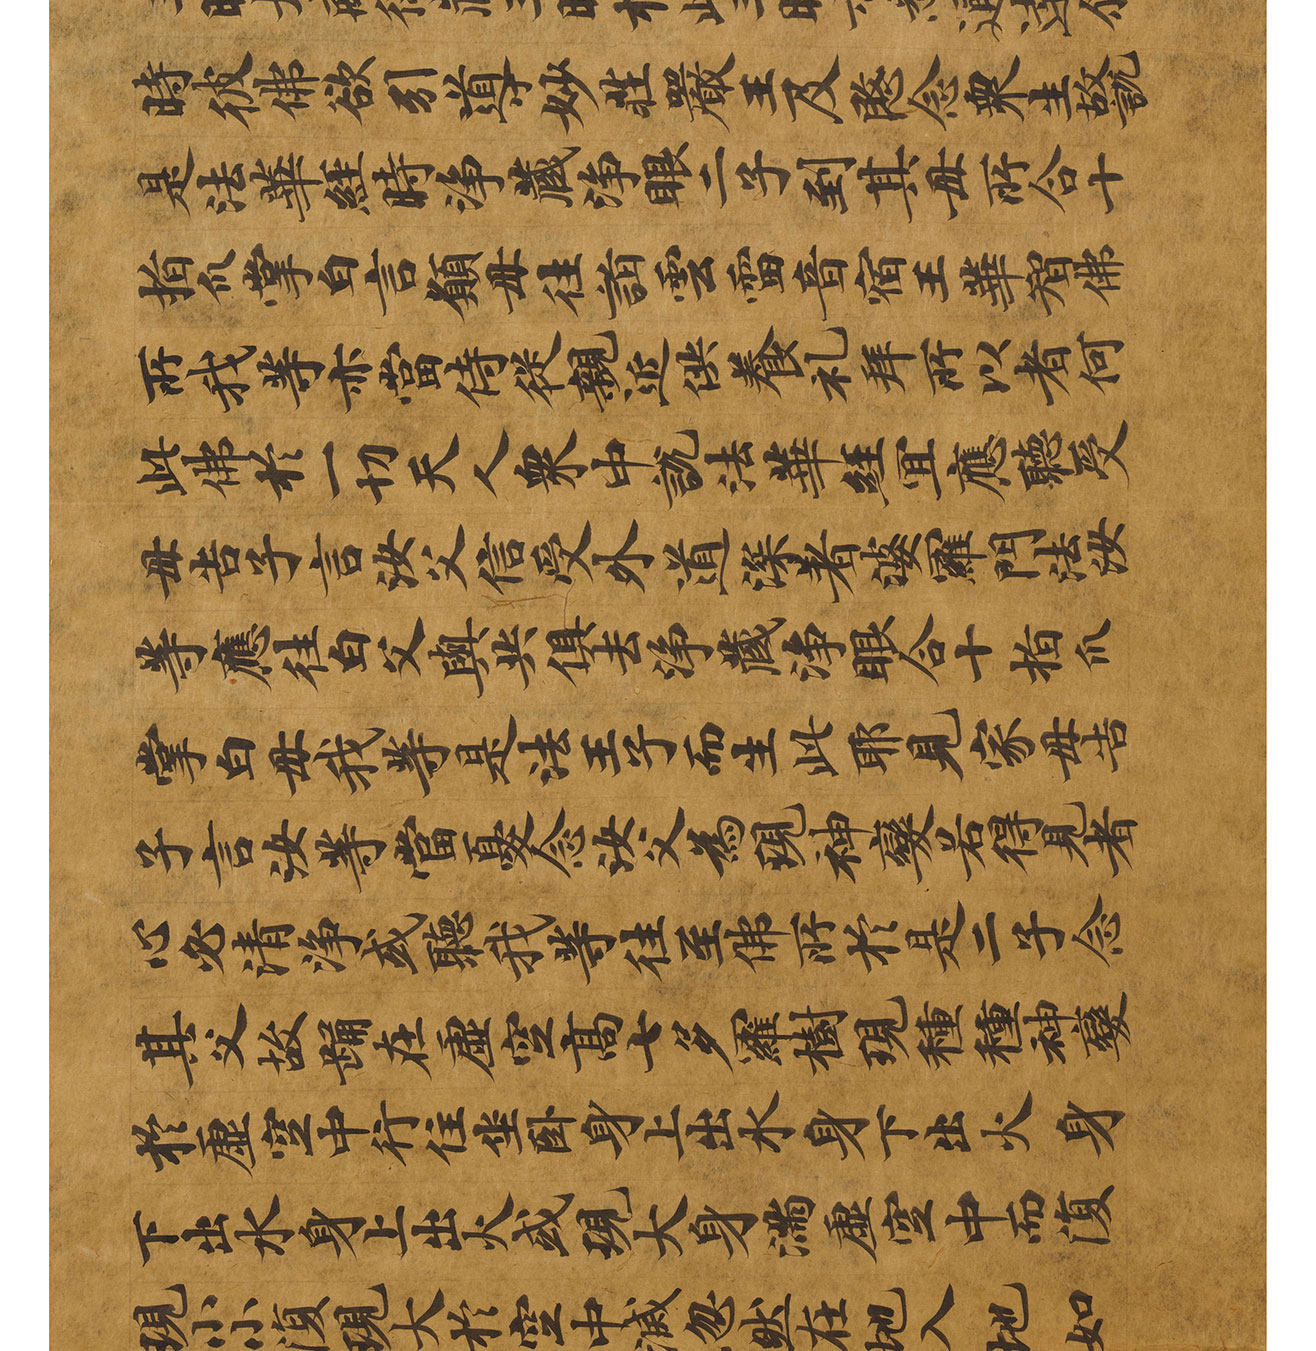 時彼佛欲引導妙莊嚴王及愍念衆生故說
是法華經時淨藏淨眼二子到其母所合十
指爪掌白言願母往詣雲雷音宿王華智佛
所我等亦當侍從親近供養礼拜所以者何
此佛於一切天人衆中說法華經宜應聽受
母告子言汝父信受外道深著婆羅門法汝
等應往白父與共俱去淨藏淨眼合十指爪
掌白母我等是法王子而生此耶見家母告
子言汝等當憂念汝父為現神變若得見者
心必清淨或聽我等往至佛所於是二子念
其父故踊在虛空高七多羅樹現種種神變
於虛空中行住坐臥身上出水身下出火身
下出水身上出火或現大身滿虛空中而復
現小小復現大於空中滅忽然在地入地如